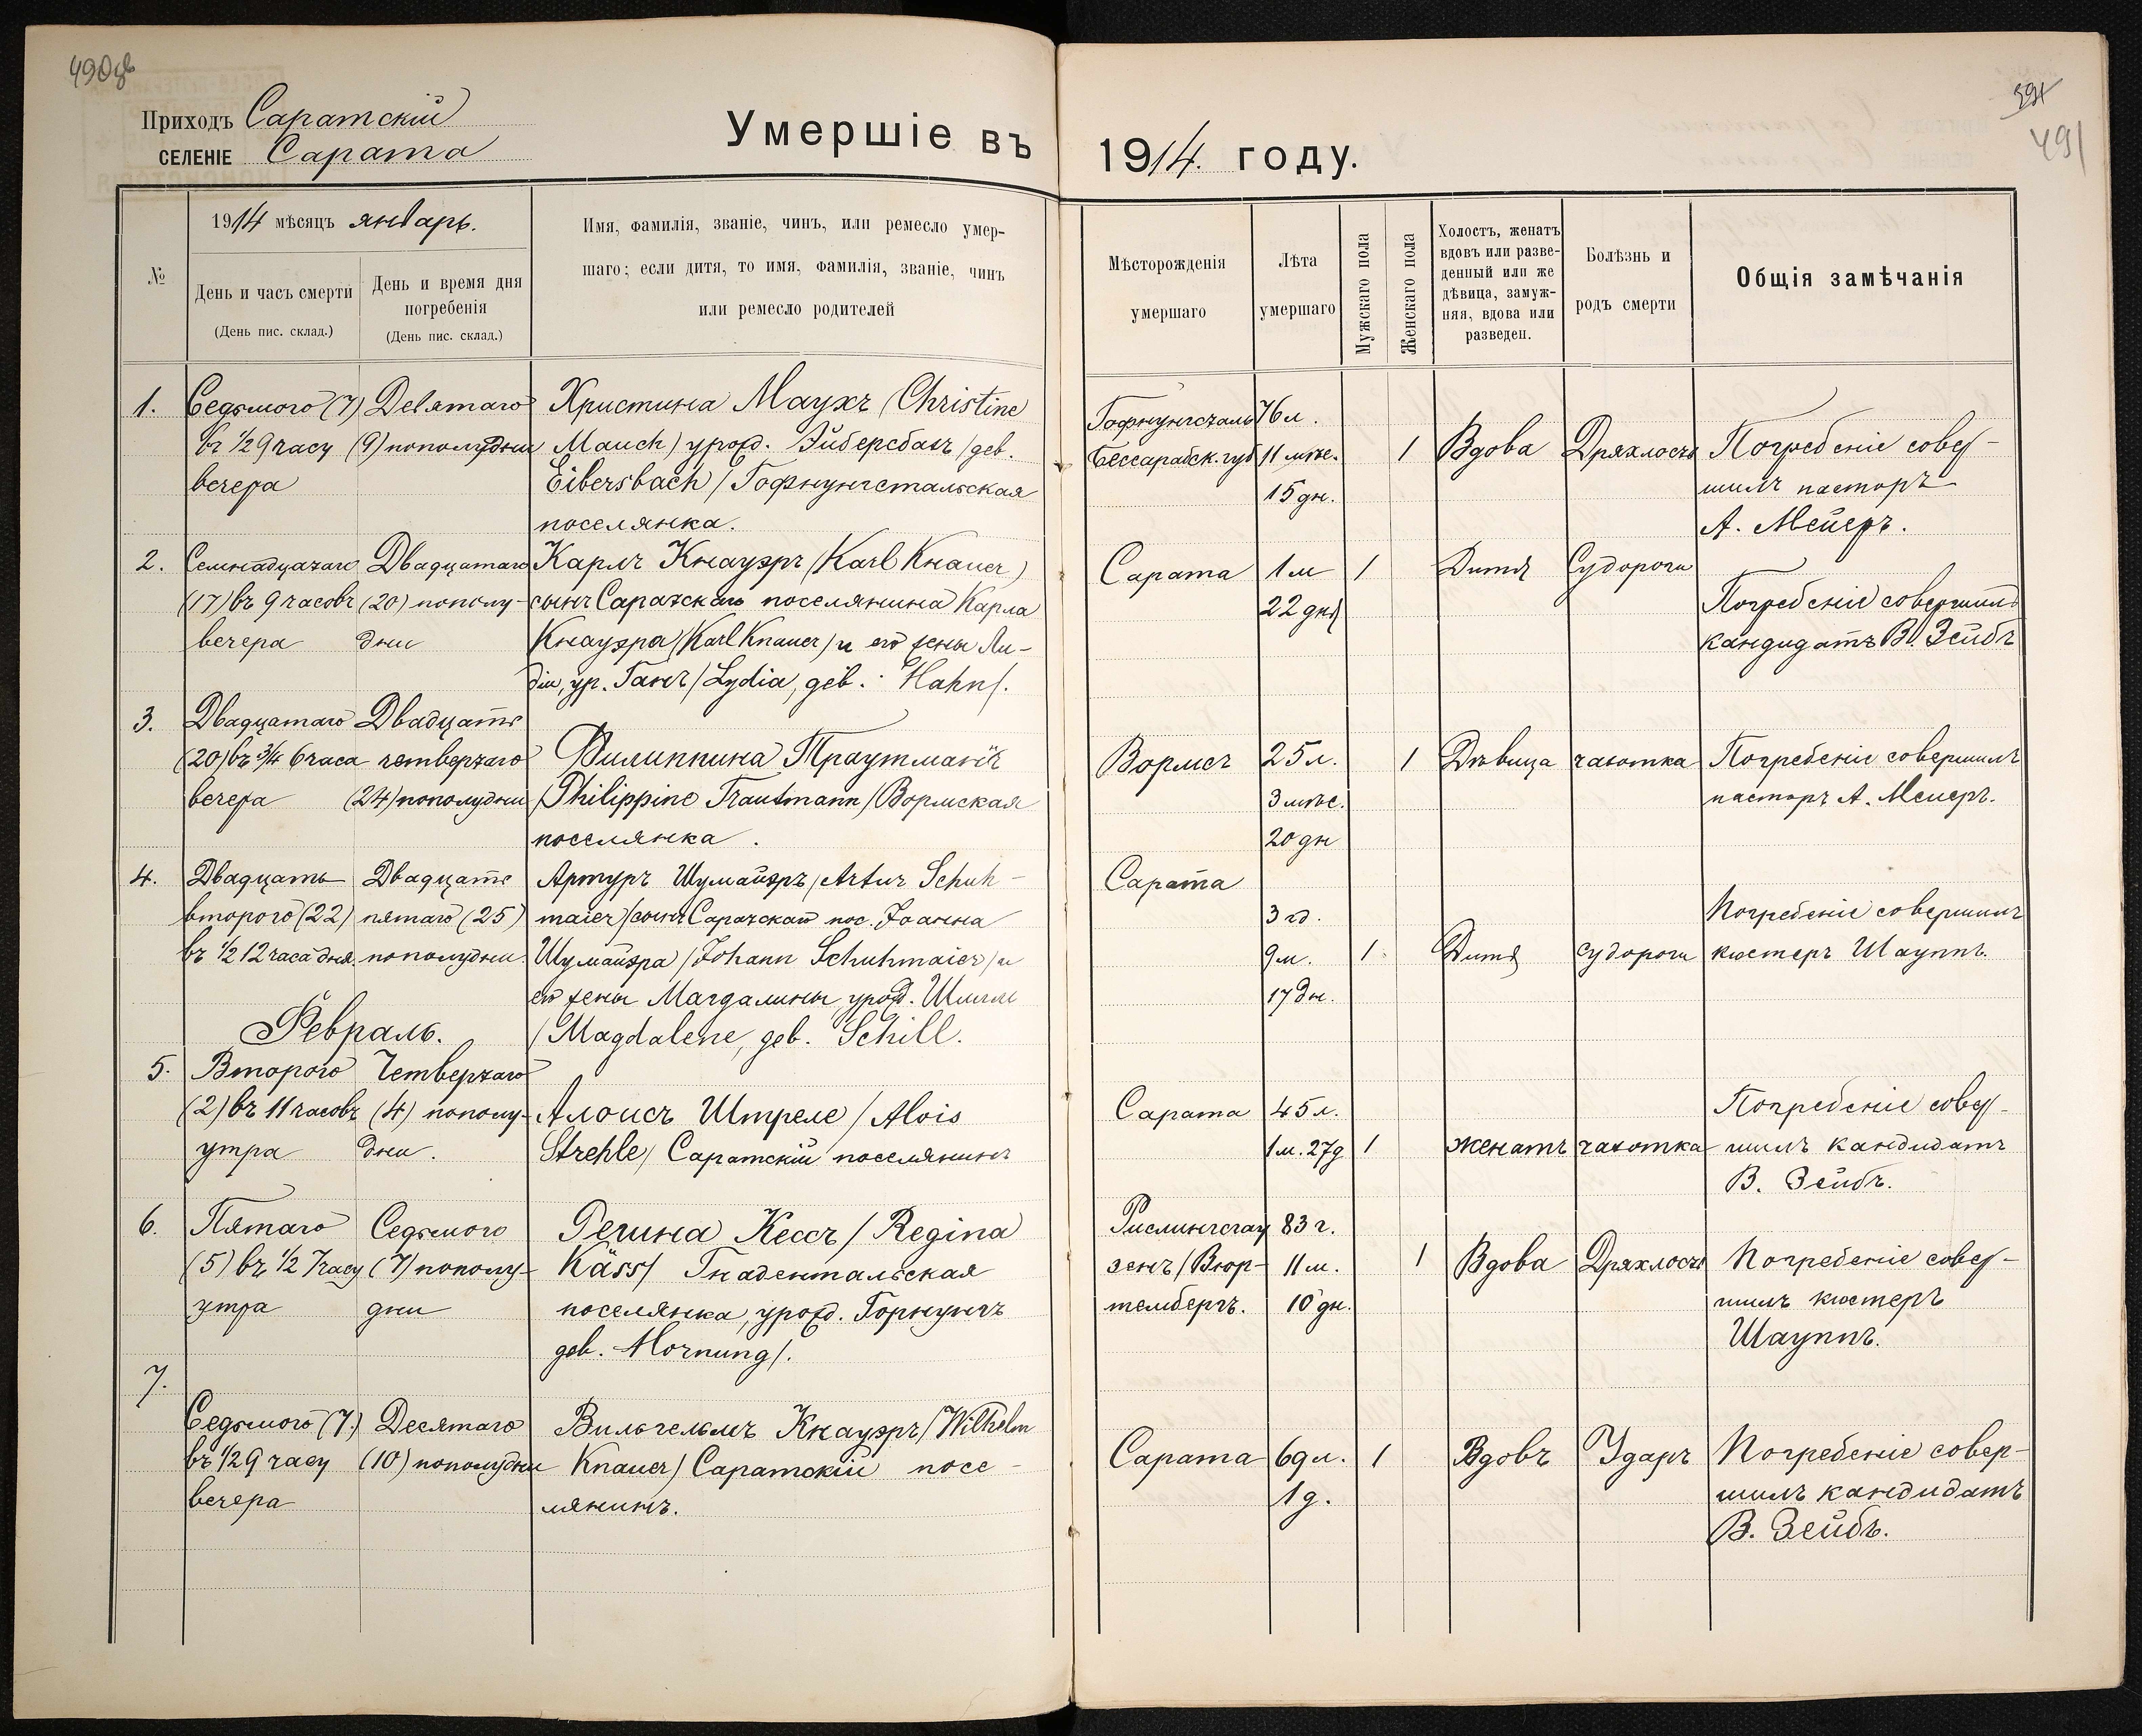 490об
391
491
Приходъ Саратскій
СЕЛЕНІЕ Сарата
Умершіе въ 1914. году.
№
1914 мѣсяцъ январь.
День и часъ смерти
(День пис. склад.)
День и время дня
погребенія
(День пис. склад.)
Имя, фамилія, званіе, чинъ, или ремесло умер-
шаго; если дитя, то имя, фамилія, званіе, чинъ
или ремесло родителей
Мѣсторожденія
умершаго
Лѣта
умершаго
Мужскаго пола
Женскаго пола
Холостъ, женатъ
вдовъ или разве-
денный или же
дѣвица, замуж-
няя, вдова или
разведен.
Болѣзнь и
родъ смерти
Общія замѣчанія
1.
Седьмого (7)
въ ½ 9 часу
вечера
Девятаго
(9) пополудни
Христина Маухъ (Christine
Mauch) урожд. Эйберсбахъ (geb.
Eibersbach) Гофнунгстальская
поселянка.
Гофнунгсталь
Бессарабск. губ
76 л.
11 мѣс.
15 дн.
1
Вдова
Дряхлость
Погребеніе совер-
шилъ пасторъ
А. Мейеръ.
2.
Семнадцатаго
(17) въ 9 часовъ
вечера
Двадцатаго
(20) пополу-
дни
Карлъ Кнауэръ (Karl Knauer)
сынъ Саратскаго поселянина Карла
Кнауэра (Karl Knauer) и его жены Ли-
діи, ур. Ганъ (Lydia, geb.: Hahn).
Сарата
1 м
22 дня
1
Дитя
Судороги
Погребеніе совершилъ
кандидатъ В. Зейбъ
3.
Двадцатаго
(20) въ ¾ 6 часа
вечера
Двадцать
четвертаго
(24) пополудни
Филиппина Траутманъ
(Philippine Trautmann) Вормская
поселянка.
Вормсъ
25 л.
3 мѣс.
20 дн
1
Дѣвица
чахотка
Погребеніе совершилъ
пасторъ А. Мейеръ.
4.
Двадцать
второго (22)
въ ½ 12 часа дня.
Двадцать
пятаго (25)
пополудни.
Артуръ Шумайэръ (Artur Schuh-
maier) сынъ Саратскаго пос. Іоанна
Шумайэра (Johann Schuhmaier) и
его жены Магдалины, урожд. Шилль
(Magdalene, geb. Schill.
Сарата
3 гд.
9 м.
17 дн.
1
Дитя
Судороги
Погребеніе совершилъ
кюстеръ Шауппъ.
Февраль.
5.
Второго
(2) въ 11 часовъ
утра
Четвертаго
(4) пополу-
дни.
Алоисъ Штреле (Alois
Strehle) Саратскій поселянинъ
Сарата
45 л.
1 м. 27 д
1
женатъ
чахотка
Погребеніе совер-
шилъ кандидатъ
В. Зейбъ.
6.
Пятаго
(5) въ ½ 7 часу
утра
Седьмого
(7) пополу-
дни
Регина Кессъ (Regina
Käss) Гнадентальская
поселянка, урожд. Горнунгъ
geb. Hornung).
Рислингсгау
зенъ (Вюр-
тембергъ.
83 г.
11 м.
10 дн.
1
Вдова
Дряхлость
Погребеніе совер-
шилъ кюстеръ
Шауппъ.
7.
Седьмого (7.)
въ ½ 9 часу
вечера
Десятаго
(10) пополудни
Вильгельмъ Кнауэръ (Wilhelm
Knauer) Саратскій посе-
лянинъ.
Сарата
69 л.
1 д.
1
Вдовъ
Ударъ
Погребеніе совер-
шилъ кандидатъ
В. Зейбъ.